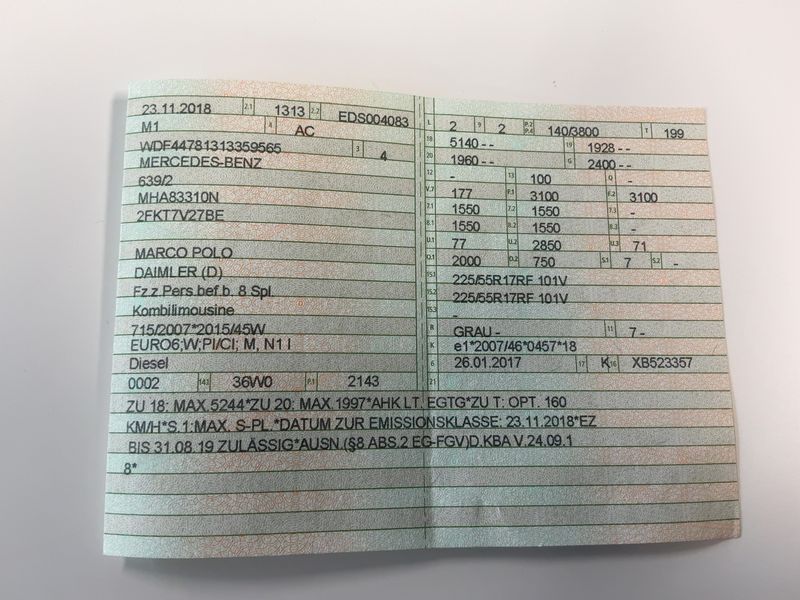 23.11.2018 2.1 1313 2.2 EDS004083
M1 4 AC
WDF44781313359565 3 4
MERCEDES-BENZ
639/2
MHA83310N
2FKT7V27BE
MARCO POLO
DAIMLER (D)
Fz.z.Pers.bef.b. 8 Spl.
Kombilimousine
715/2007*2015/45W
EURO6;W;PI/CI; M, N1 I
Diesel
0002 14.1 36W0 P.1 2143
L 2 9 2 P.2 P.4 140/3800 T 199
18 5140 - - 19 1928 - -
20 1960 - - G 2400 - -
12 - 13 100 Q -
V.7 177 F.1 3100 F.2 3100
7.1 1550 7.2 1550 7.3 -
8.1 1550 8.2 1550 8.3 -
U.1 77 U.2 2850 U.3 71
O.1 2000 O.2 750 S.1 7 S.2 -
15.1 225/55R17RF 101V
15.2 225/55R17RF 101V
15.3 -
R GRAU - 11 7 -
K e1*2007/46*0457*18
6 26.01.2017 17 K 16 XB523357
21
ZU 18: MAX.5244*ZU 20: MAX.1997*AHK LT. EGTG*ZU T: OPT. 160
KM/H*S.1:MAX. S-PL.*DATUM ZUR EMISSIONSKLASSE: 23.11.2018*EZ
BIS 31.08.19 ZULÄSSIG*AUSN.(§8 ABS.2 EG-FGV)D.KBA V.24.09.1
8*